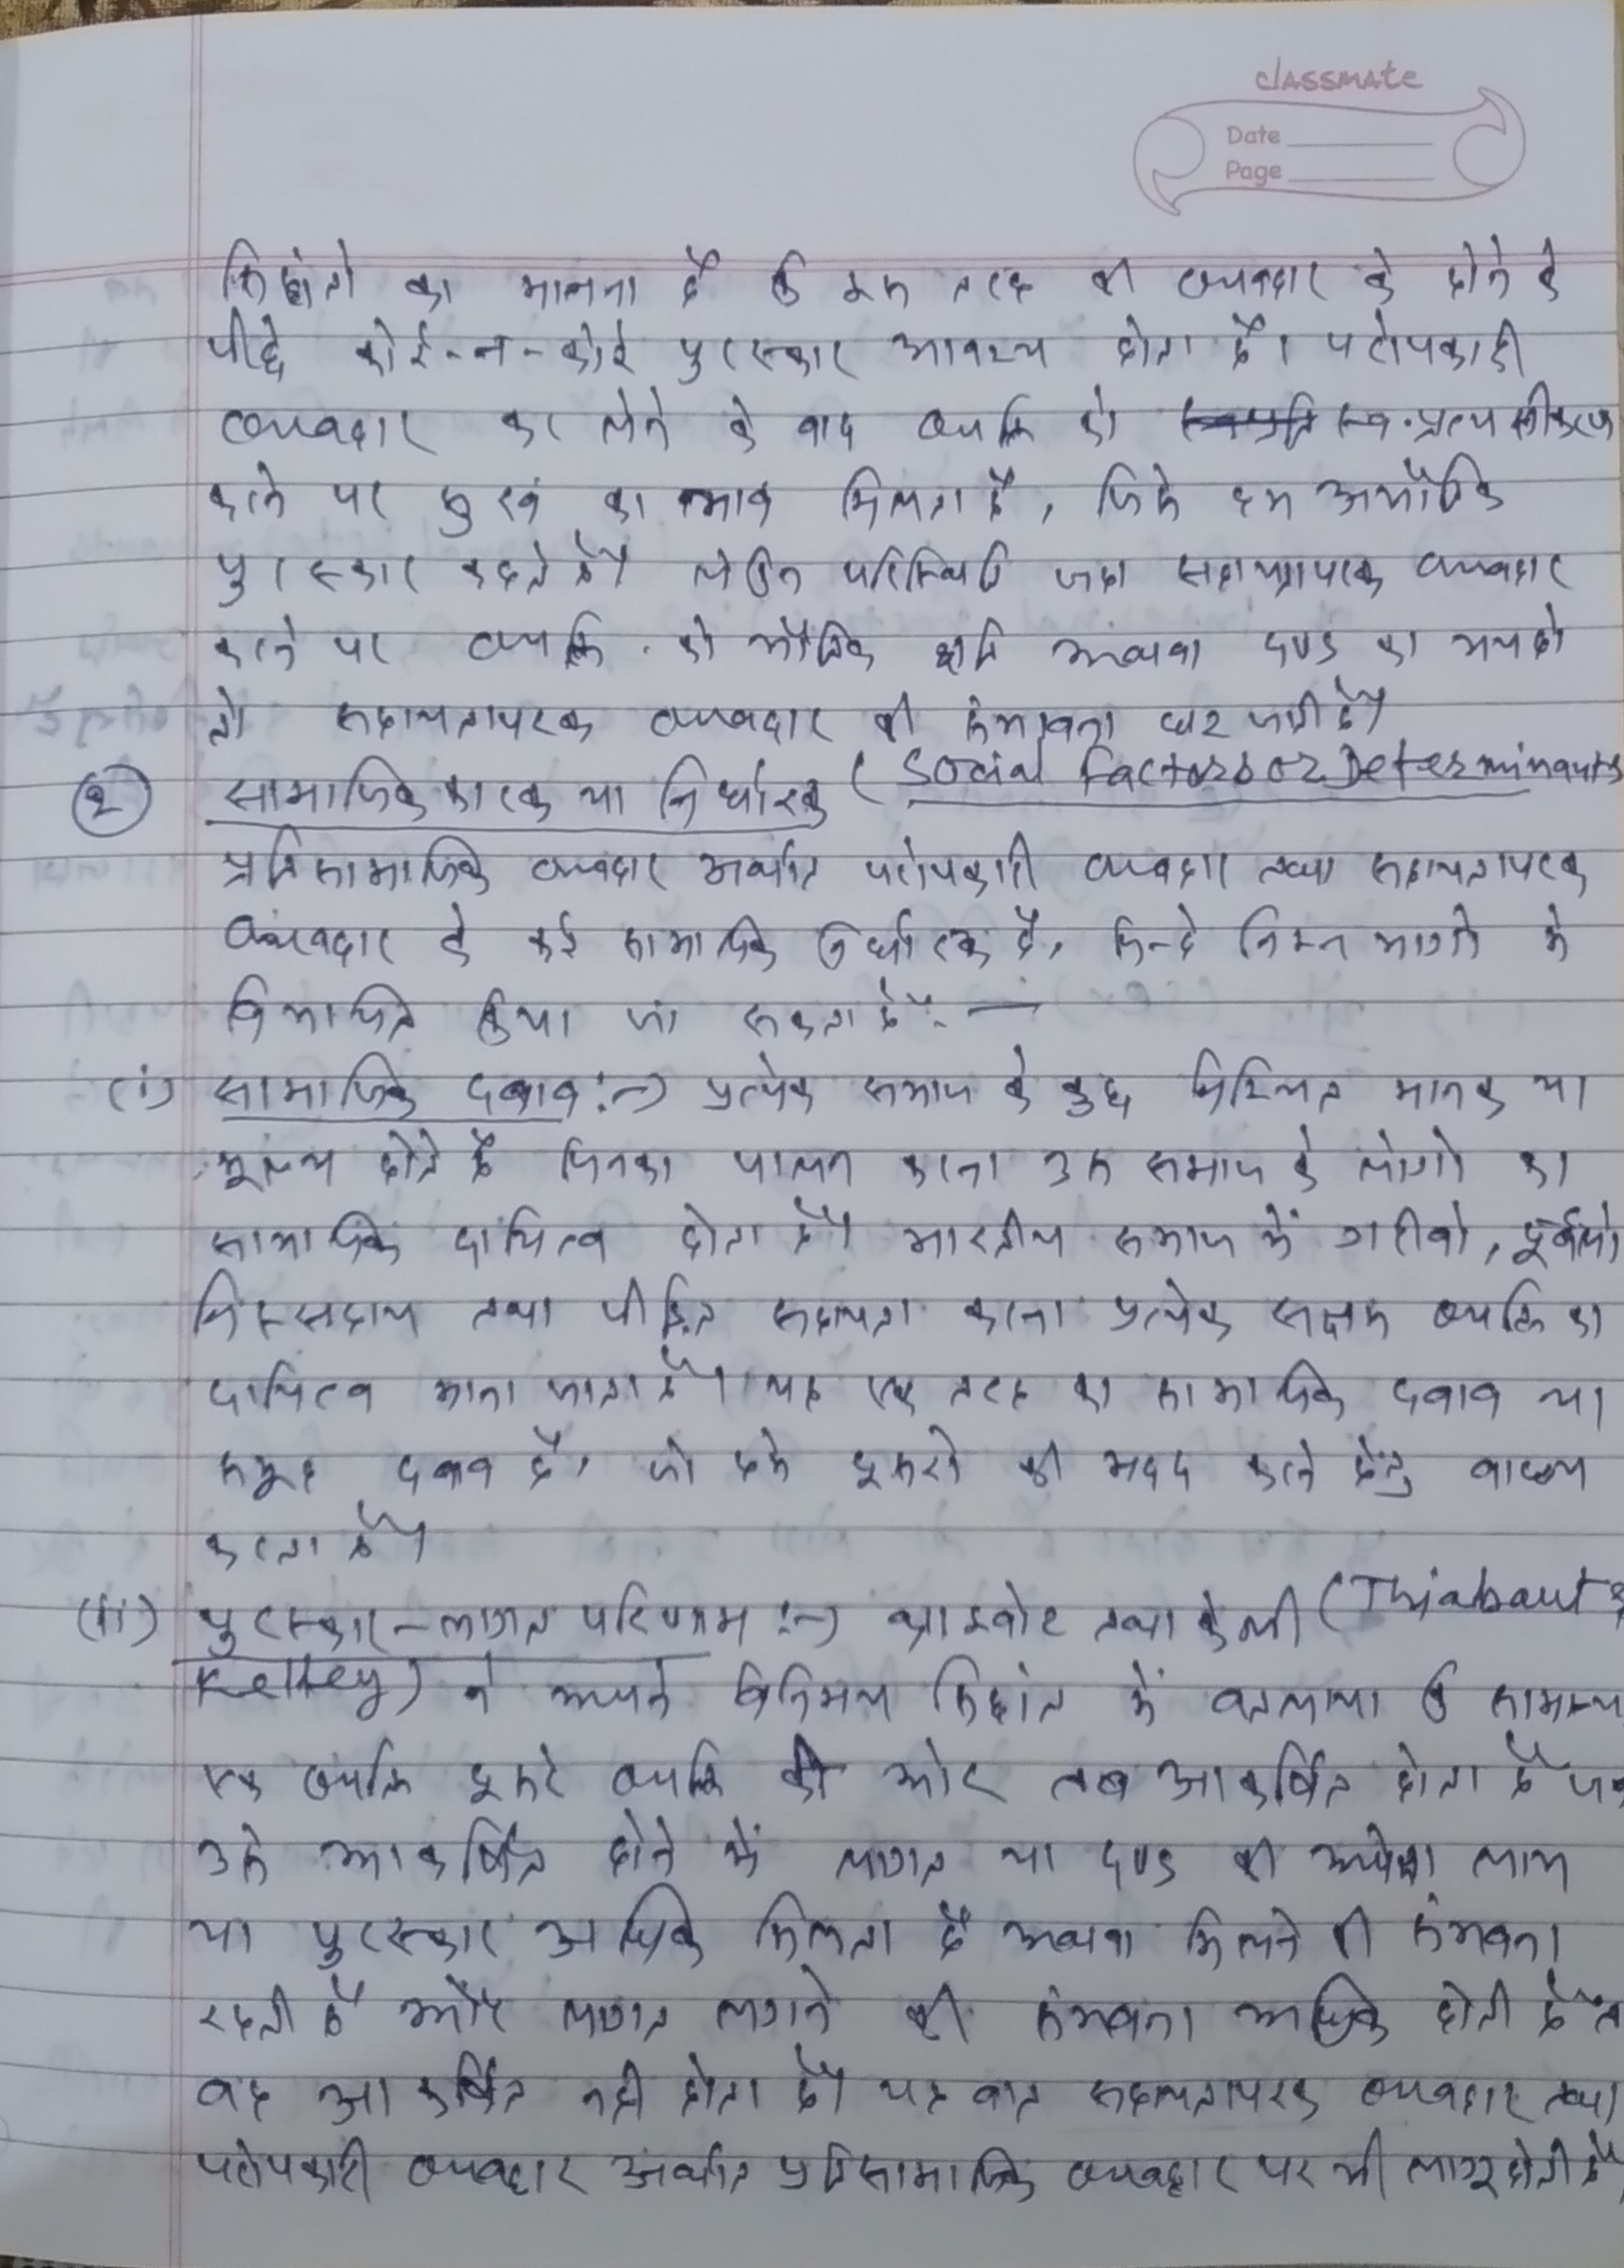 classmate
Date
Page
सिद्धांतो का मानना है कि इस तरह की व्यवहार के होने के
पीछे कोई-न-कोई पुरस्कार आवश्य होता है। परोपकारी
व्यवहार कर लेने के बाद व्यक्ति को स्व-प्रत्यक्षीकरण
करने पर सुख का भाव मिलता है, जिसे हम अभौतिक
पुरस्कार कहते है। लेकिन परिस्थिति जहा सहायतापरक व्यवहार
करने पर व्यक्ति को भौतिक क्षति अथवा दण्ड का भय हो
तो सहायतापरक व्यवहार की संभावना घट जाती है।
② सामाजिक कारक या निर्धारक (Social factors or Determinants
प्रतिसामाजिक व्यवहार अर्थात परोपकारी व्यवहार तथा सहायतापरक
व्यवहार के कई सामाजिक निर्धारक है, जिन्हे निम्न भागो मे
विभाजित किया जा सकता है: —
(i) सामाजिक दबाव :-) प्रत्येक समाज के कुछ निश्चित मानक या
मूल्य होते है जिनका पालन करना उस समाज के लोगो का
सामाजिक दायित्व होता है। भारतीय समाज में गरीबो, दूर्बलो
निस्सहाय तथा पीड़ित सहायता करना प्रत्येक सक्षम व्यक्ति का
दायित्व माना जाता है। यह एक तरह का सामाजिक दबाव या
समूह दबाव है, जो हमे दूसरो की मदद करने हेतु बाध्य
करता है।
(ii) पुरस्कार-लागत परिणाम :-) थाइबोट तथा केली (Thiabaut &
Kelley) ने अपने विनिमय सिद्धांत में बतलाया कि सामान्य
एक व्यक्ति दूसरे व्यक्ति की ओर तब आकर्षित होता है जब
उसे आकर्षित होने में लागत या दण्ड की अपेक्षा लाभ
या पुरस्कार अधिक मिलता है अथवा मिलने की संभवना
रहती है और लागत लगने की संभवना अधिक होती है त
वह आकर्षित नही होता है। यह बात सहायतापरक व्यवहार तथा
परोपकारी व्यवहार अर्थात प्रतिसामाजिक व्यवहार पर भी लागू होती है